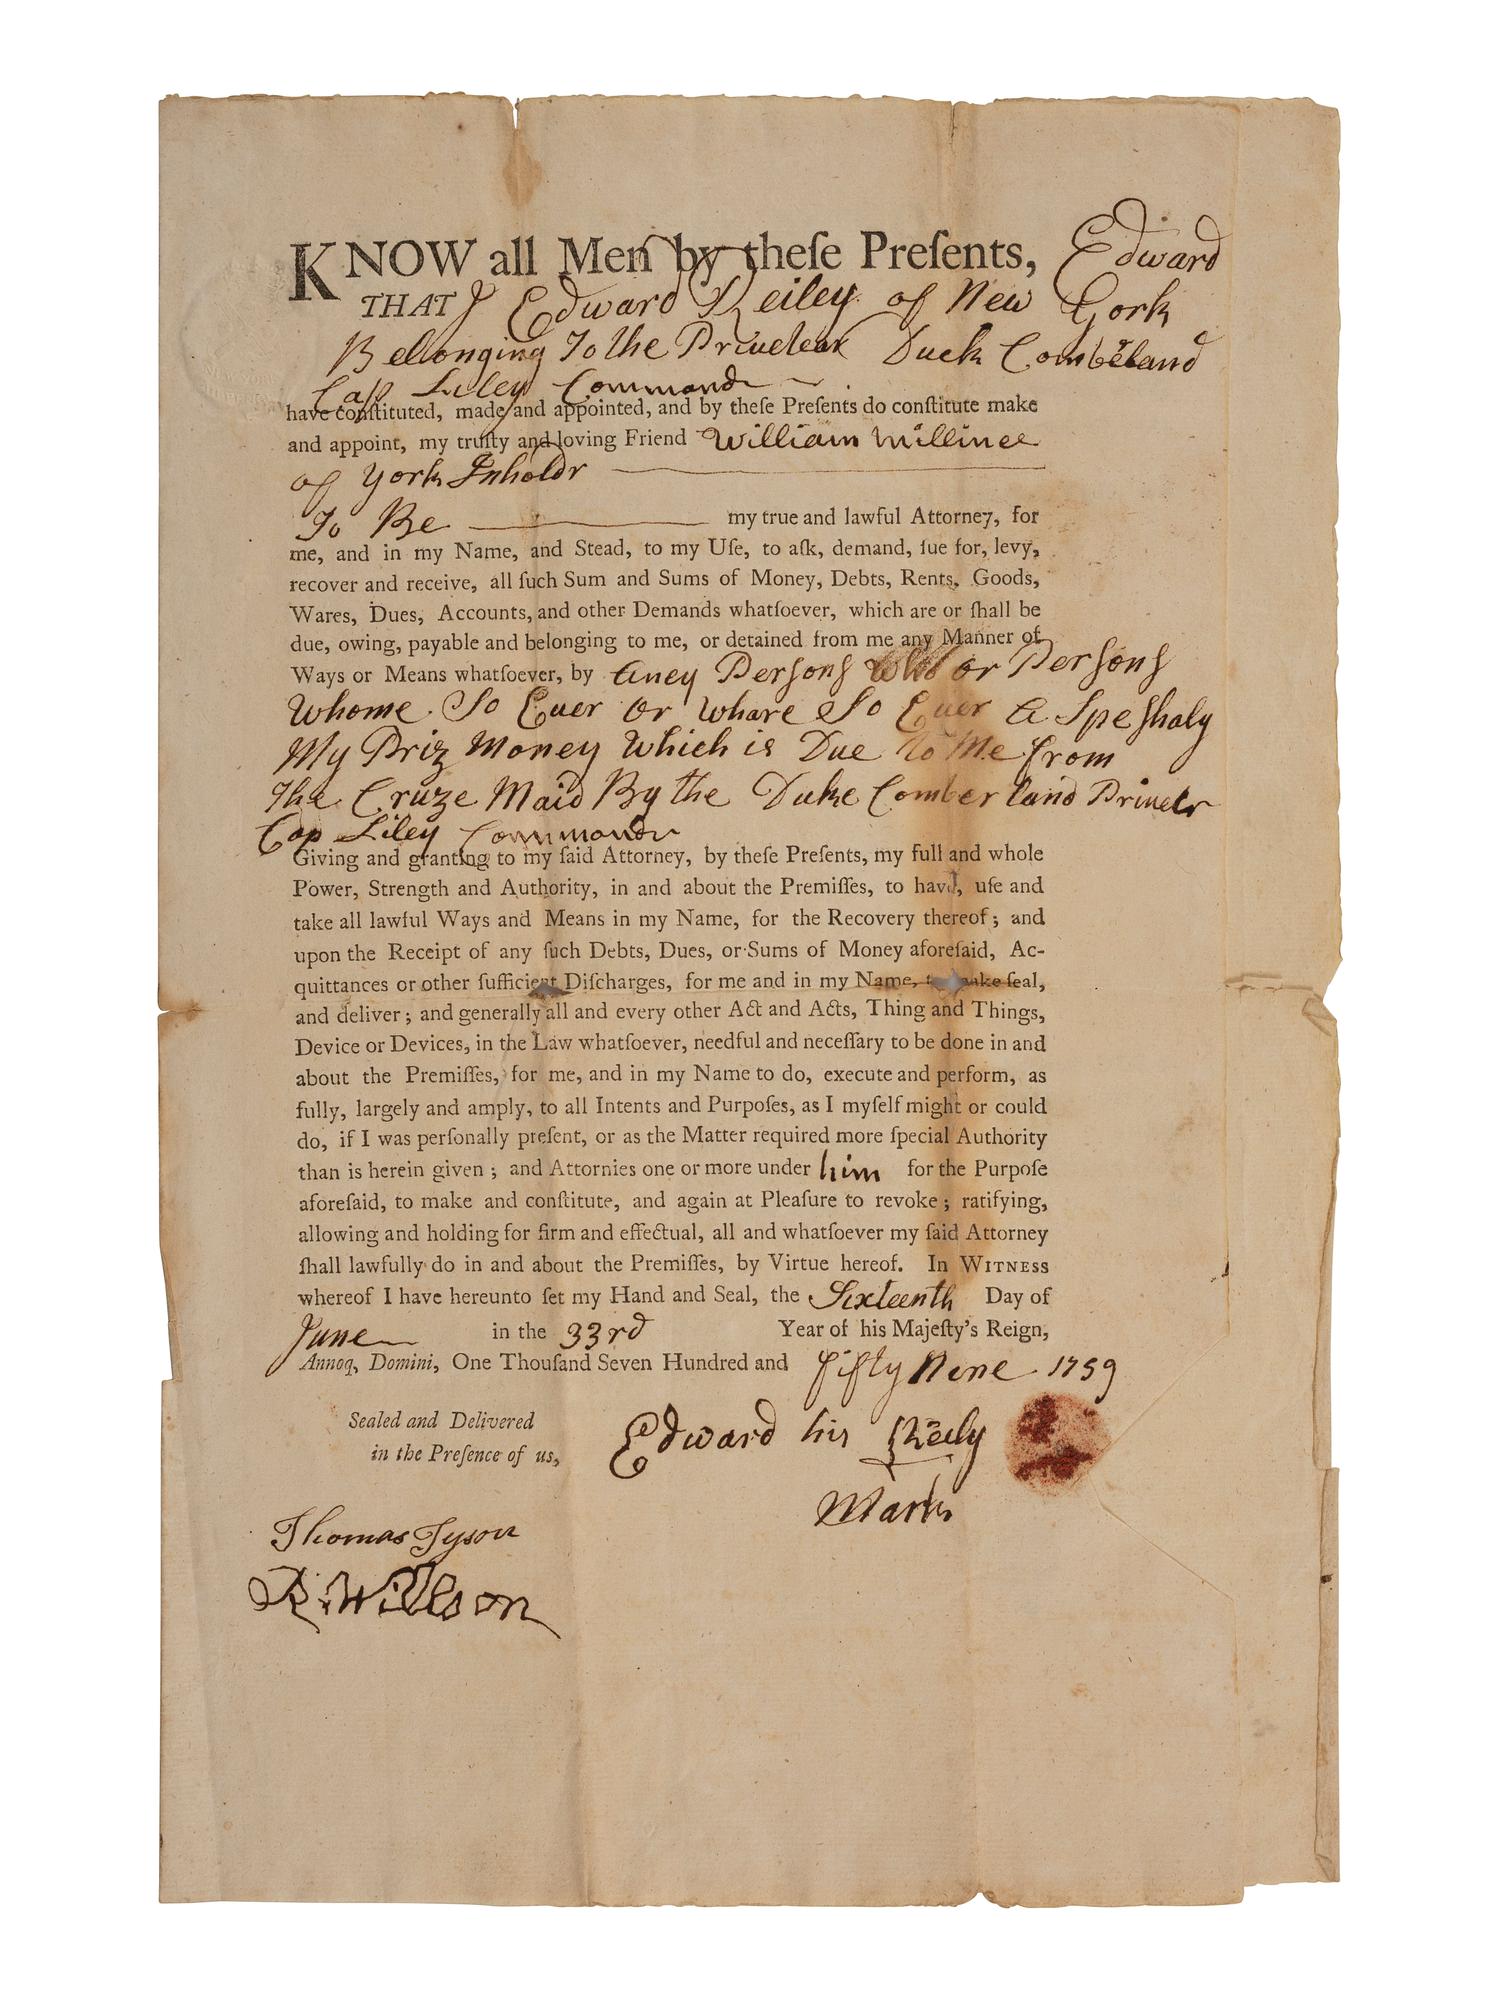 KNOW all Men by theſe Preſents, Edward
THAT I Edward Reiley of New York
Bellonging To the Privetear Duck Combeland
Cap Liley Commandr
have conſtituted, made and appointed, and by theſe Preſents do conſtitute make
and appoint, my truſty and loving Friend William Millinee
of York Inholdr
To Be my true and lawful Attorney, for
me, and in my Name, and Stead, to my Uſe, to aſk, demand, ſue for, levy,
recover and receive, all ſuch Sum and Sums of Money, Debts, Rents, Goods,
Wares, Dues, Accounts, and other Demands whatſoever, which are or ſhall be
due, owing, payable and belonging to me, or detained from me any Manner of
Ways or Means whatſoever, by aney Persons or Persons
Whome So Ever or Whare So Ever A Speshaly
My Priz Money Which is Due To Me from
The Cruze Maid By the Duke Comberland Privetr
Cap Liley Commandr
Giving and granting to my ſaid Attorney, by theſe Preſents, my full and whole
Power, Strength and Authority, in and about the Premiſſes, to have, uſe and
take all lawful Ways and Means in my Name, for the Recovery thereof; and
upon the Receipt of any ſuch Debts, Dues, or Sums of Money aforeſaid, Ac-
quittances or other ſufficient Diſcharges, for me and in my Name, make ſeal,
and deliver; and generally all and every other Act and Acts, Thing and Things,
Device or Devices, in the Law whatſoever, needful and neceſſary to be done in and
about the Premiſſes, for me, and in my Name to do, execute and perform, as
fully, largely and amply, to all Intents and Purpoſes, as I myſelf might or could
do, if I was perſonally preſent, or as the Matter required more ſpecial Authority
than is herein given; and Attornies one or more under him for the Purpoſe
aforeſaid, to make and conſtitute, and again at Pleaſure to revoke; ratifying,
allowing and holding for firm and effectual, all and whatſoever my ſaid Attorney
ſhall lawfully do in and about the Premiſſes, by Virtue hereof. In WITNESS
whereof I have hereunto ſet my Hand and Seal, the Sixteenth Day of
June in the 33rd Year of his Majeſty's Reign,
Annoq, Domini, One Thouſand Seven Hundred and fifty Nine 1759
Sealed and Delivered
in the Preſence of us,
Edward his Reely
Mark
Thomas Tyson
R. Willson